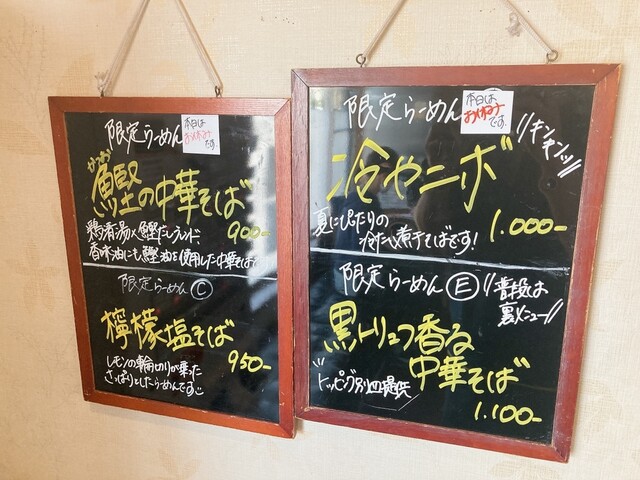 限定らーめん
本日は
お休み
です
かつお
鰹の中華そば
900-
鶏清湯×鰹だしブレンド、
香味油にも鰹油を使用した中華そば
限定らーめん Ⓒ
檸檬塩そば
950-
レモンの輪切りが乗った
さっぱりとしたらーめんです
限定らーめん
本日は
お休み
です
キンキンッ
冷やニボ
1.000-
夏にぴったりの
冷たい煮干そばです!
限定らーめん Ⓔ
普段は
裏メニュー
黒トリュフ香る
中華そば
トッピング別皿提供
1.100-